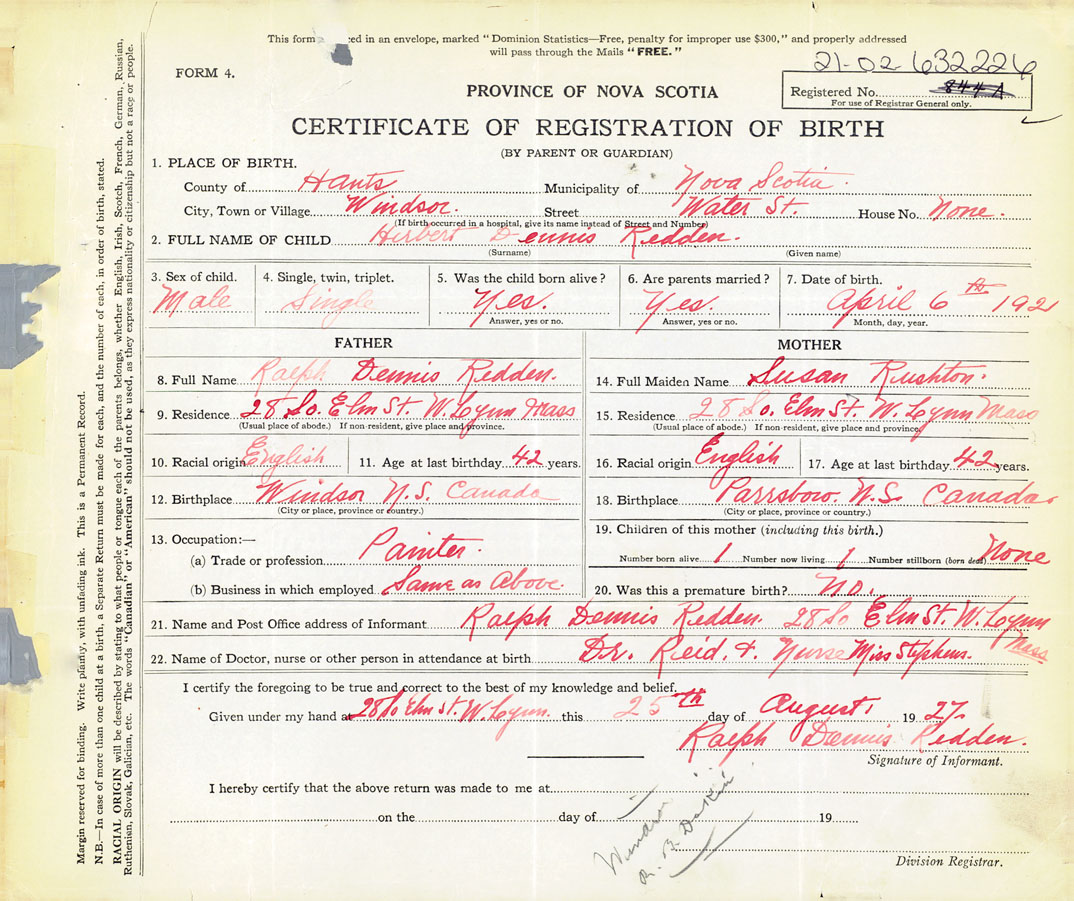 This form ed in an envelope, marked "Dominion Statistics—Free, penalty for improper use $300," and properly addressed
will pass through the Mails "FREE."
FORM 4.
21-02-632226
PROVINCE OF NOVA SCOTIA
Registered No. 844A
For use of Registrar General only.
CERTIFICATE OF REGISTRATION OF BIRTH
(BY PARENT OR GUARDIAN)
1. PLACE OF BIRTH.
County of Hants Municipality of Nova Scotia.
City, Town or Village Windsor. Street Water St. House No. None.
(If birth occurred in a hospital, give its name instead of Street and Number)
2. FULL NAME OF CHILD Hirbert Dennis Redden.
(Surname) (Given name)
3. Sex of child. 4. Single, twin, triplet. 5. Was the child born alive? 6. Are parents married? 7. Date of birth.
Male Single Yes. Yes. April 6th 1921
Answer, yes or no. Answer, yes or no. Month, day, year.
FATHER MOTHER
8. Full Name Ralph Dennis Redden. 14. Full Maiden Name Susan Rushton.
9. Residence 28 So. Elm St. W. Lynn Mass 15. Residence 28 So. Elm St. W. Lynn Mass
(Usual place of abode.) If non-resident, give place and province. (Usual place of abode.) If non-resident, give place and province.
10. Racial origin English 11. Age at last birthday 42 years. 16. Racial origin English 17. Age at last birthday 42 years.
12. Birthplace Windsor N.S. Canada 18. Birthplace Parrsboro. N.S. Canada.
(City or place, province or country.) (City or place, province or country.)
13. Occupation:— 19. Children of this mother (including this birth.)
(a) Trade or profession Painter. Number born alive 1 Number now living 1 Number stillborn (born dead) None
(b) Business in which employed Same as Above. 20. Was this a premature birth? No.
21. Name and Post Office address of Informant Ralph Dennis Redden. 28 So Elm St. W. Lynn Mass
22. Name of Doctor, nurse or other person in attendance at birth Dr. Reid. & Nurse Miss Stephens.
I certify the foregoing to be true and correct to the best of my knowledge and belief.
Given under my hand at 28 So Elm St. W. Lynn. this 25th day of August, 1927.
Ralph Dennis Redden.
Signature of Informant.
I hereby certify that the above return was made to me at
on the day of 19
Windsor
R. B. Dakin
Division Registrar.
Margin reserved for binding. Write plainly, with unfading ink. This is a Permanent Record.
N.B.—In case of more than one child at a birth, a Separate Return must be made for each, and the number of each, in order of birth, stated.
RACIAL ORIGIN will be described by stating to what people or tongue each of the parents belongs, whether English, Irish, Scotch, French, German, Russian,
Ruthenian, Slovak, Galician, etc. The words "Canadian" or "American" should not be used, as they express nationality or citizenship but not a race or people.